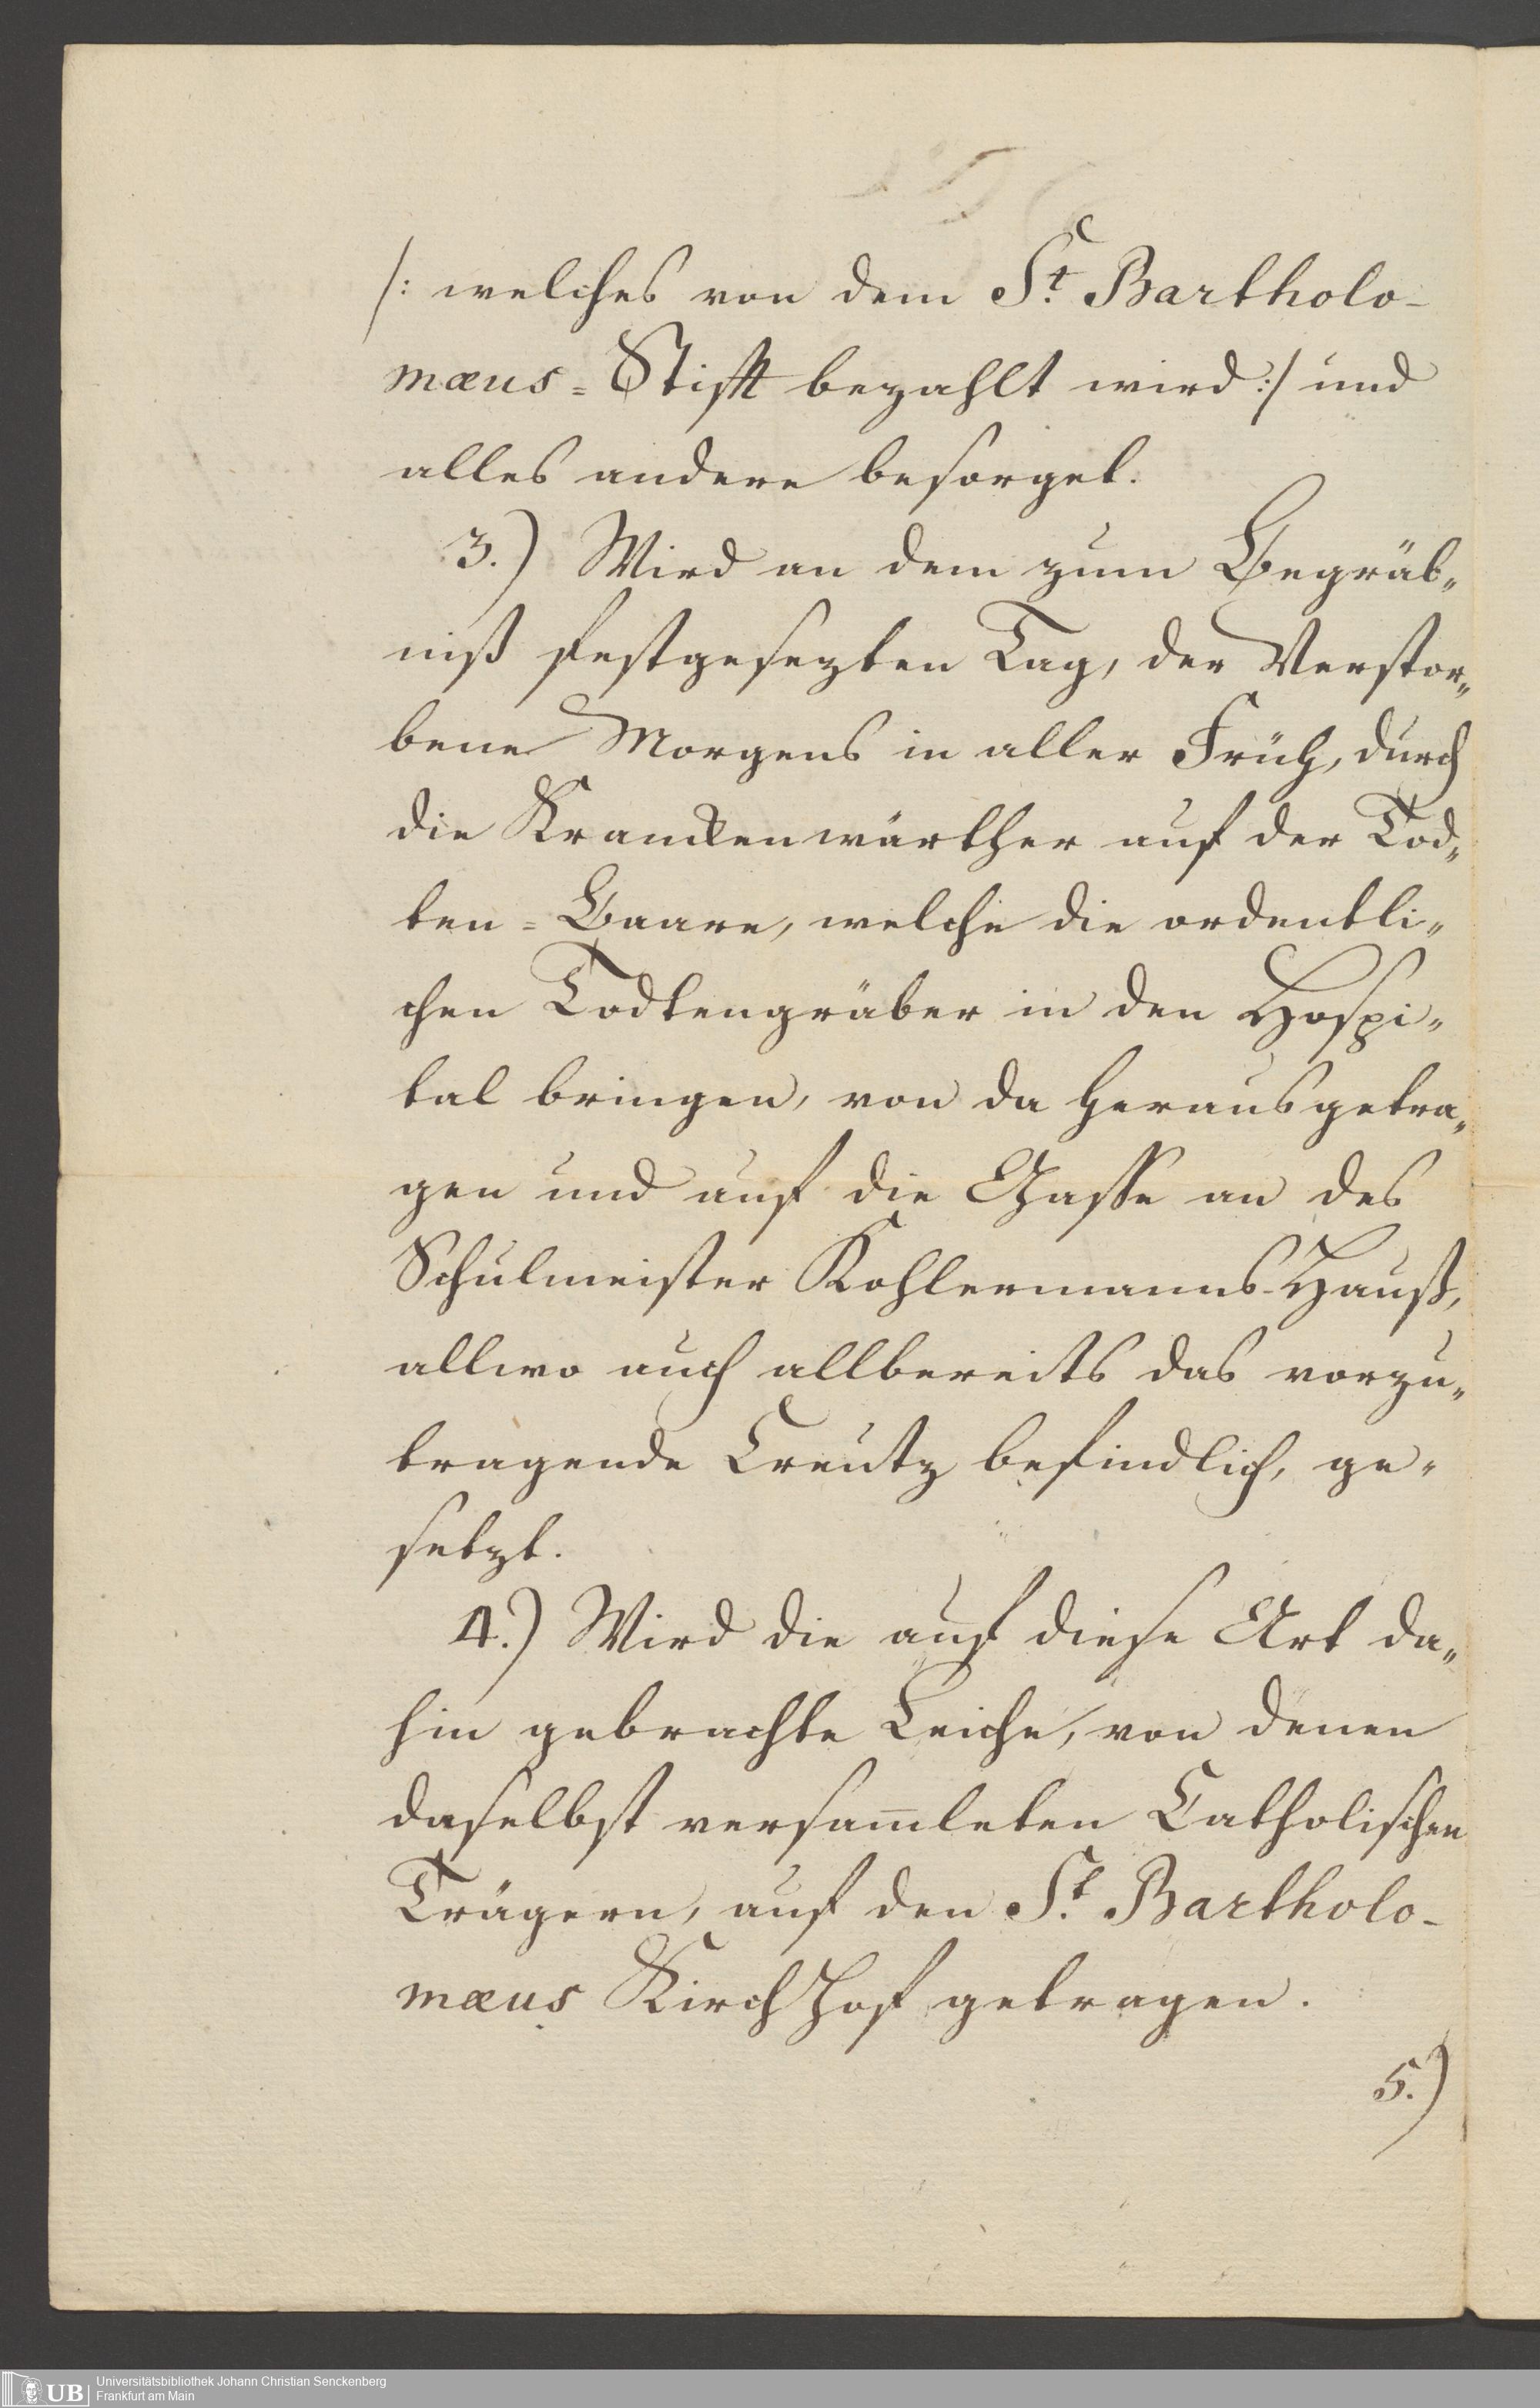 /: welches von dem St. Bartholo-
mæus=Stifft bezahlt wird :/ und
alles andere besorget.
3.) Wird an dem zum Begräb„
niß festgesezten Tag, der Verstor„
bene Morgens in aller Früh, durch
die Kranckenwärther auf der Tod„
ten=Baare, welche die ordentli„
chen Todtengräber in den Hospi„
tal bringen, von da herausgetra„
gen und auf die Gasse an des
Schulmeister Kohlermanns-Hauß,
allwo auch allbereits das vorzu„
tragende Creutz befindlich, ge„
setzt.
4.) Wird die auf diese Art da„
hin gebrachte Leiche, von denen
daselbst versam̄leten Catholischen
Trägern, auf den St. Bartholo-
mæus Kirchhof getragen.
5.)
Universitätsbibliothek Johann Christian Senckenberg
UB Frankfurt am Main